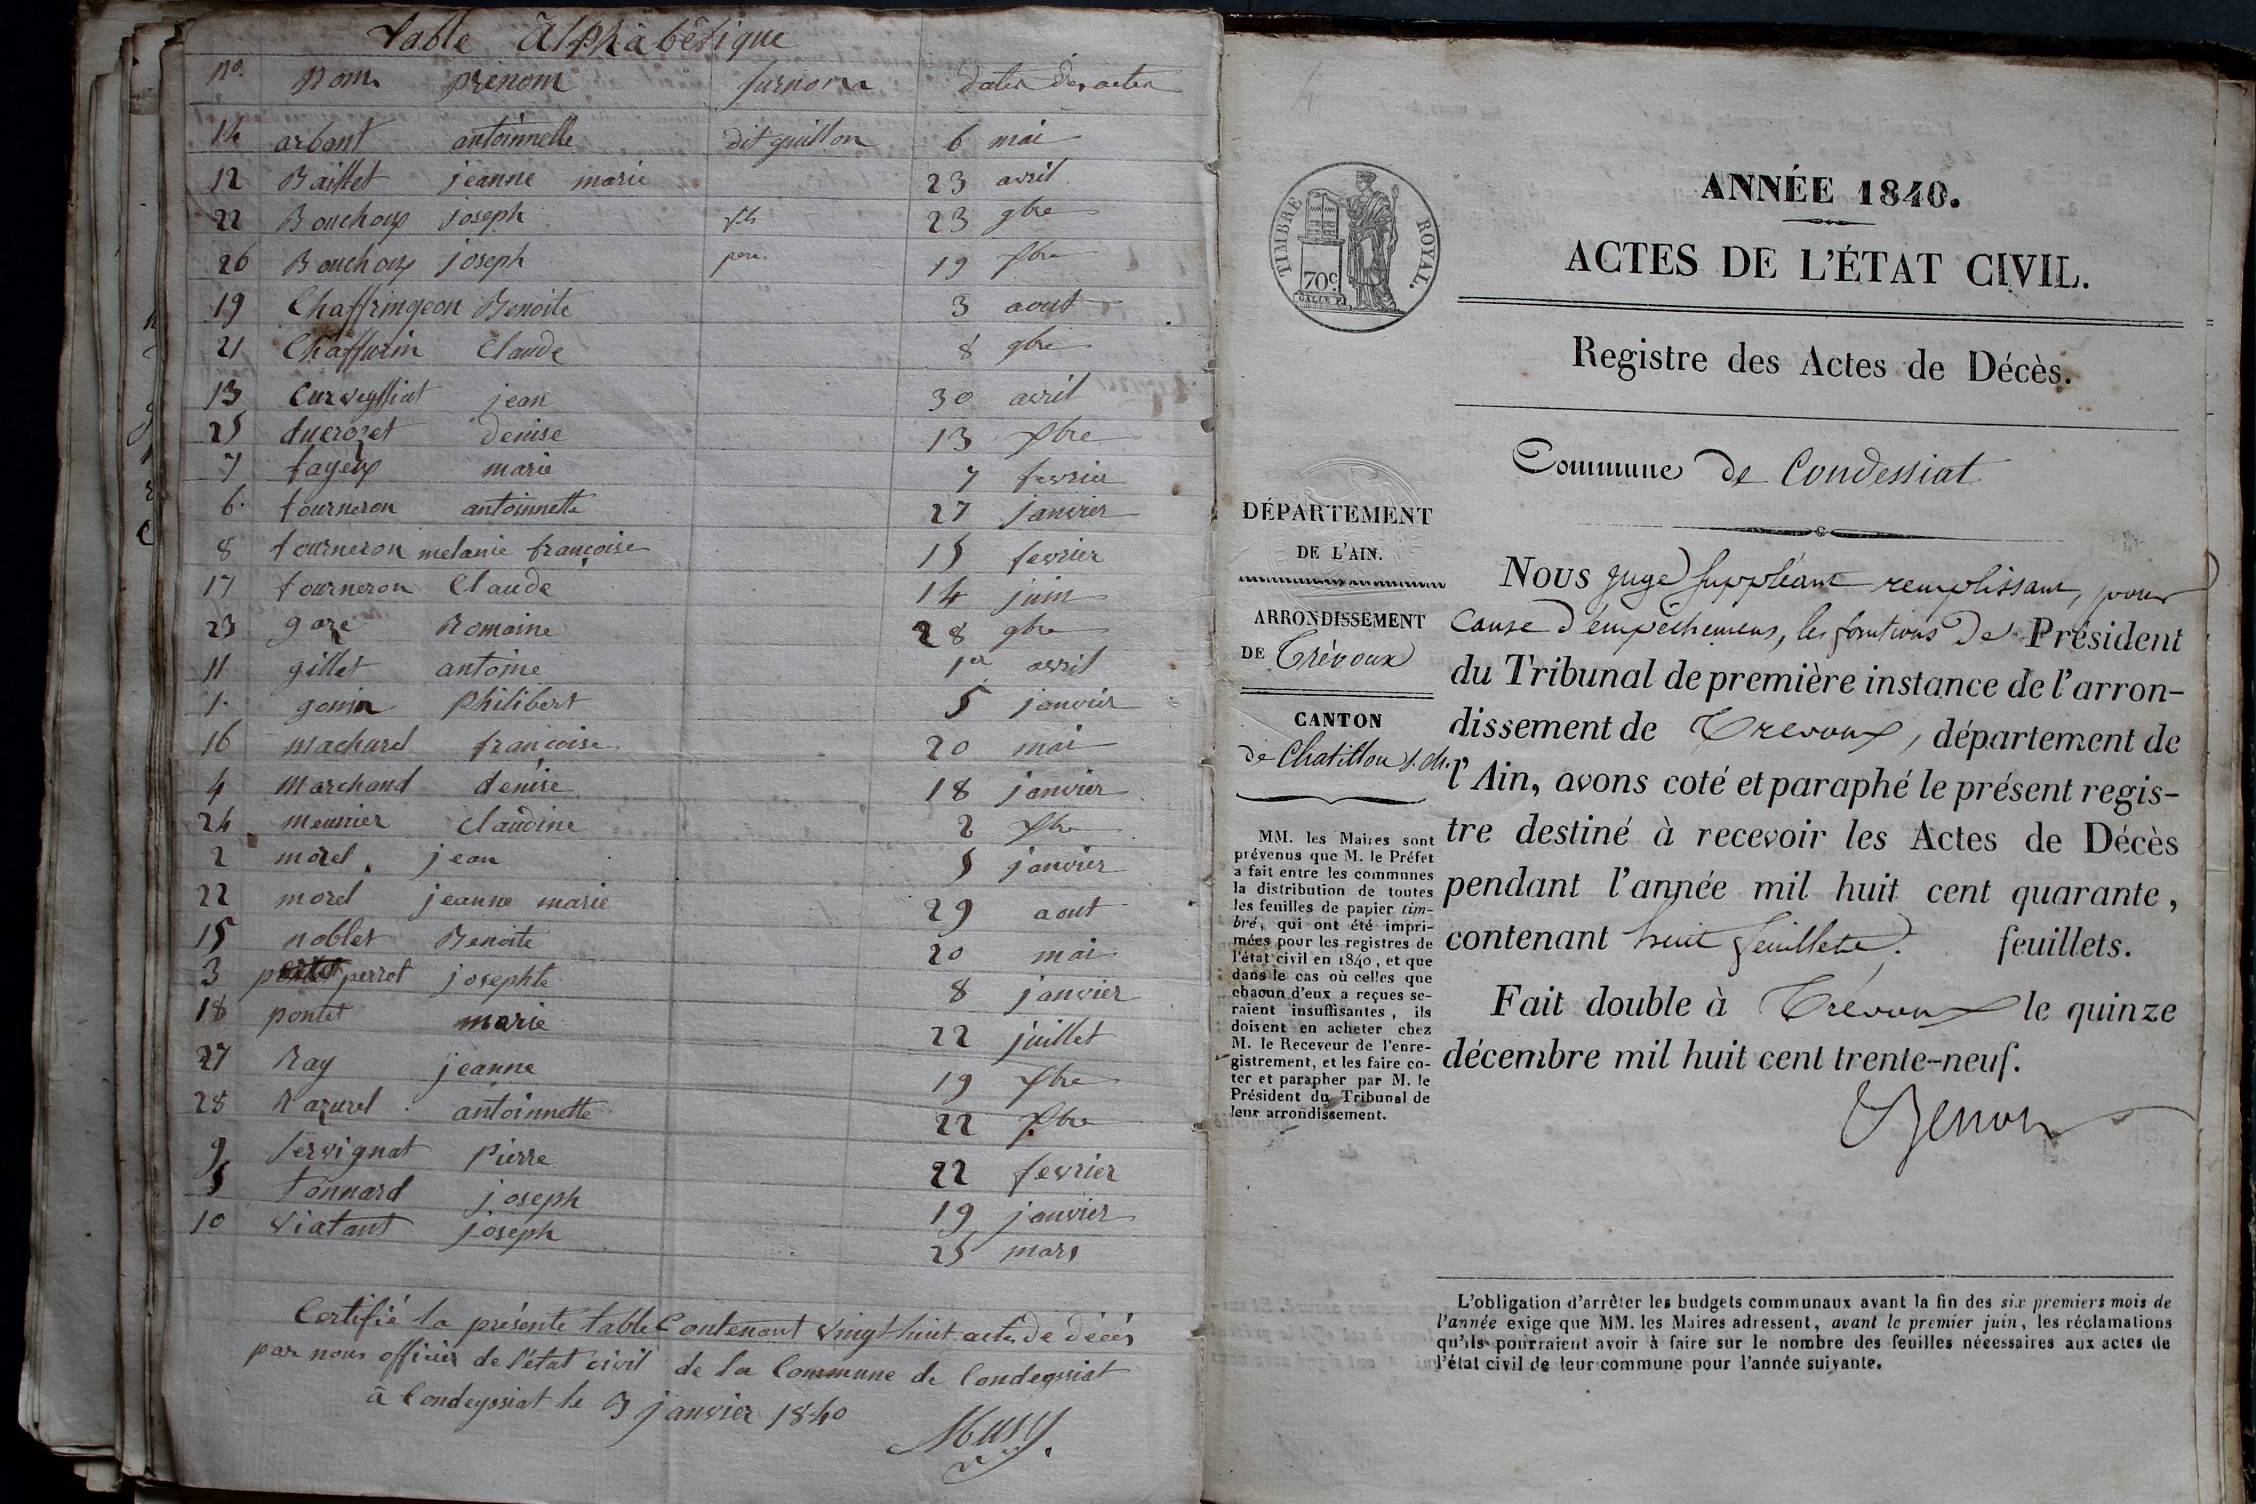 Table alphabétique
no. nom prénom surnom dates des actes
14 arbant antoinnette dit guillon 6 mai
12 Baillet jeanne marie 23 avril
22 Bouchoux joseph fils 23 9bre
26 Bouchoux joseph pere 19 Xbre
19 Chaffringeon Benoite 3 aout
21 Chaffurin Claude 8 9bre
13 Curveyssiat jean 30 avril
25 ducrozet denise 13 Xbre
7 fayeux marie 7 fevrier
6. fourneron antoinnette 27 janvier
8 fourneron melanie françoise 15 fevrier
17 fourneron Claude 14 juin
23 Romaine 28 9bre
11 gillet antoine 1er avril
1. gonin Philibert 5 janvier
16 machurel françoise 20 mai
4 Marchand denise 18 janvier
24 meunier Claudine 2 Xbre
2 morel jean 5 janvier
22 morel jeanne marie 29 aout
15 noblet Benoite 20 mai
3 perrot josephte 8 janvier
18 pontet marie 22 juillet
27 Ray jeanne 19 Xbre
28 Razurel antoinnette 22 Xbre
9 Servignat Pierre 22 fevrier
5 Tonnard joseph 19 janvier
10 Viatant joseph 25 mars
Certifié la présente table Contenant vingt huit actes de décès
par nous officier de l'état civil de la Commune de Condeyssiat
à Condeyssiat le 3 janvier 1840
Musy
TIMBRE ROYAL.
70c.
ANNÉE 1840.
ACTES DE L'ÉTAT CIVIL.
Registre des Actes de Décès.
Commune de Condessiat
DÉPARTEMENT
DE L'AIN.
ARRONDISSEMENT
DE Trévoux
CANTON
de Chatillon s. Ch.
MM. les Maires sont
prévenus que M. le Préfet
a fait entre les communes
la distribution de toutes
les feuilles de papier tim-
bré, qui ont été impri-
mées pour les registres de
l'état civil en 1840, et que
dans le cas où celles que
chacun d'eux a reçues se-
raient insuffisantes, ils
doivent en acheter chez
M. le Receveur de l'enre-
gistrement, et les faire co-
ter et parapher par M. le
Président du Tribunal de
leur arrondissement.
Nous juge suppléant remplissant, pour
Cause d'empêchemens, les fonctions de Président
du Tribunal de première instance de l'arron-
dissement de Trevoux, département de
l'Ain, avons coté et paraphé le présent regis-
tre destiné à recevoir les Actes de Décès
pendant l'année mil huit cent quarante,
contenant huit feuillets. feuillets.
Fait double à Trévoux le quinze
décembre mil huit cent trente-neuf.
L'obligation d'arrêter les budgets communaux avant la fin des six premiers mois de
l'année exige que MM. les Maires adressent, avant le premier juin, les réclamations
qu'ils pourraient avoir à faire sur le nombre des feuilles nécessaires aux actes de
l'état civil de leur commune pour l'année suivante.